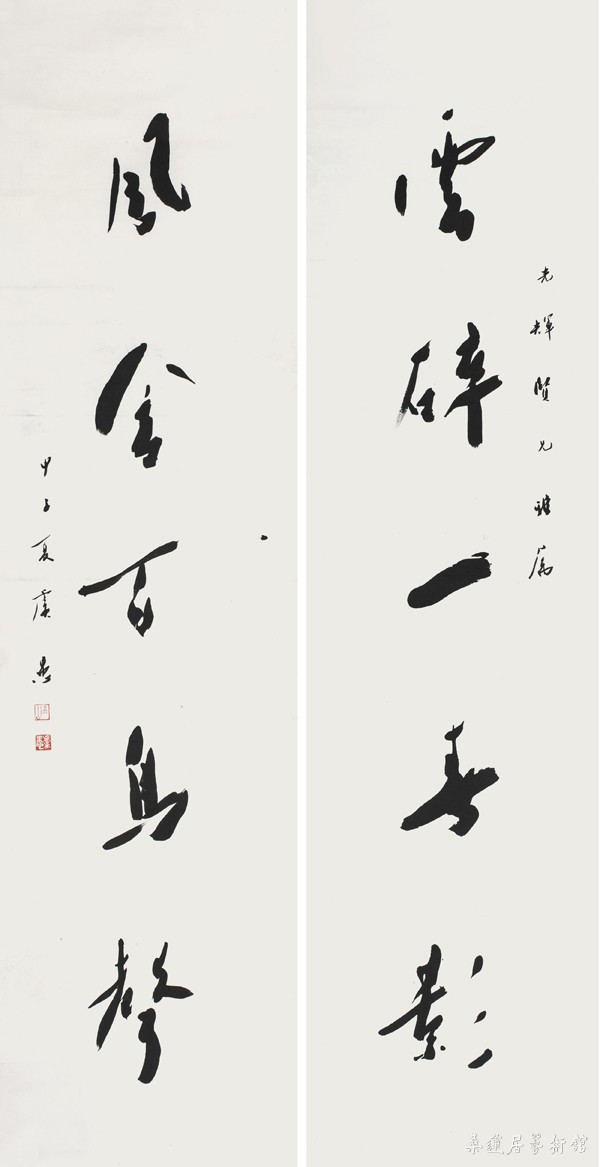 光輝賢兄雅屬
雲碎一春影
風含百鳥聲
甲子夏虞愚
桑蓮居藝術館